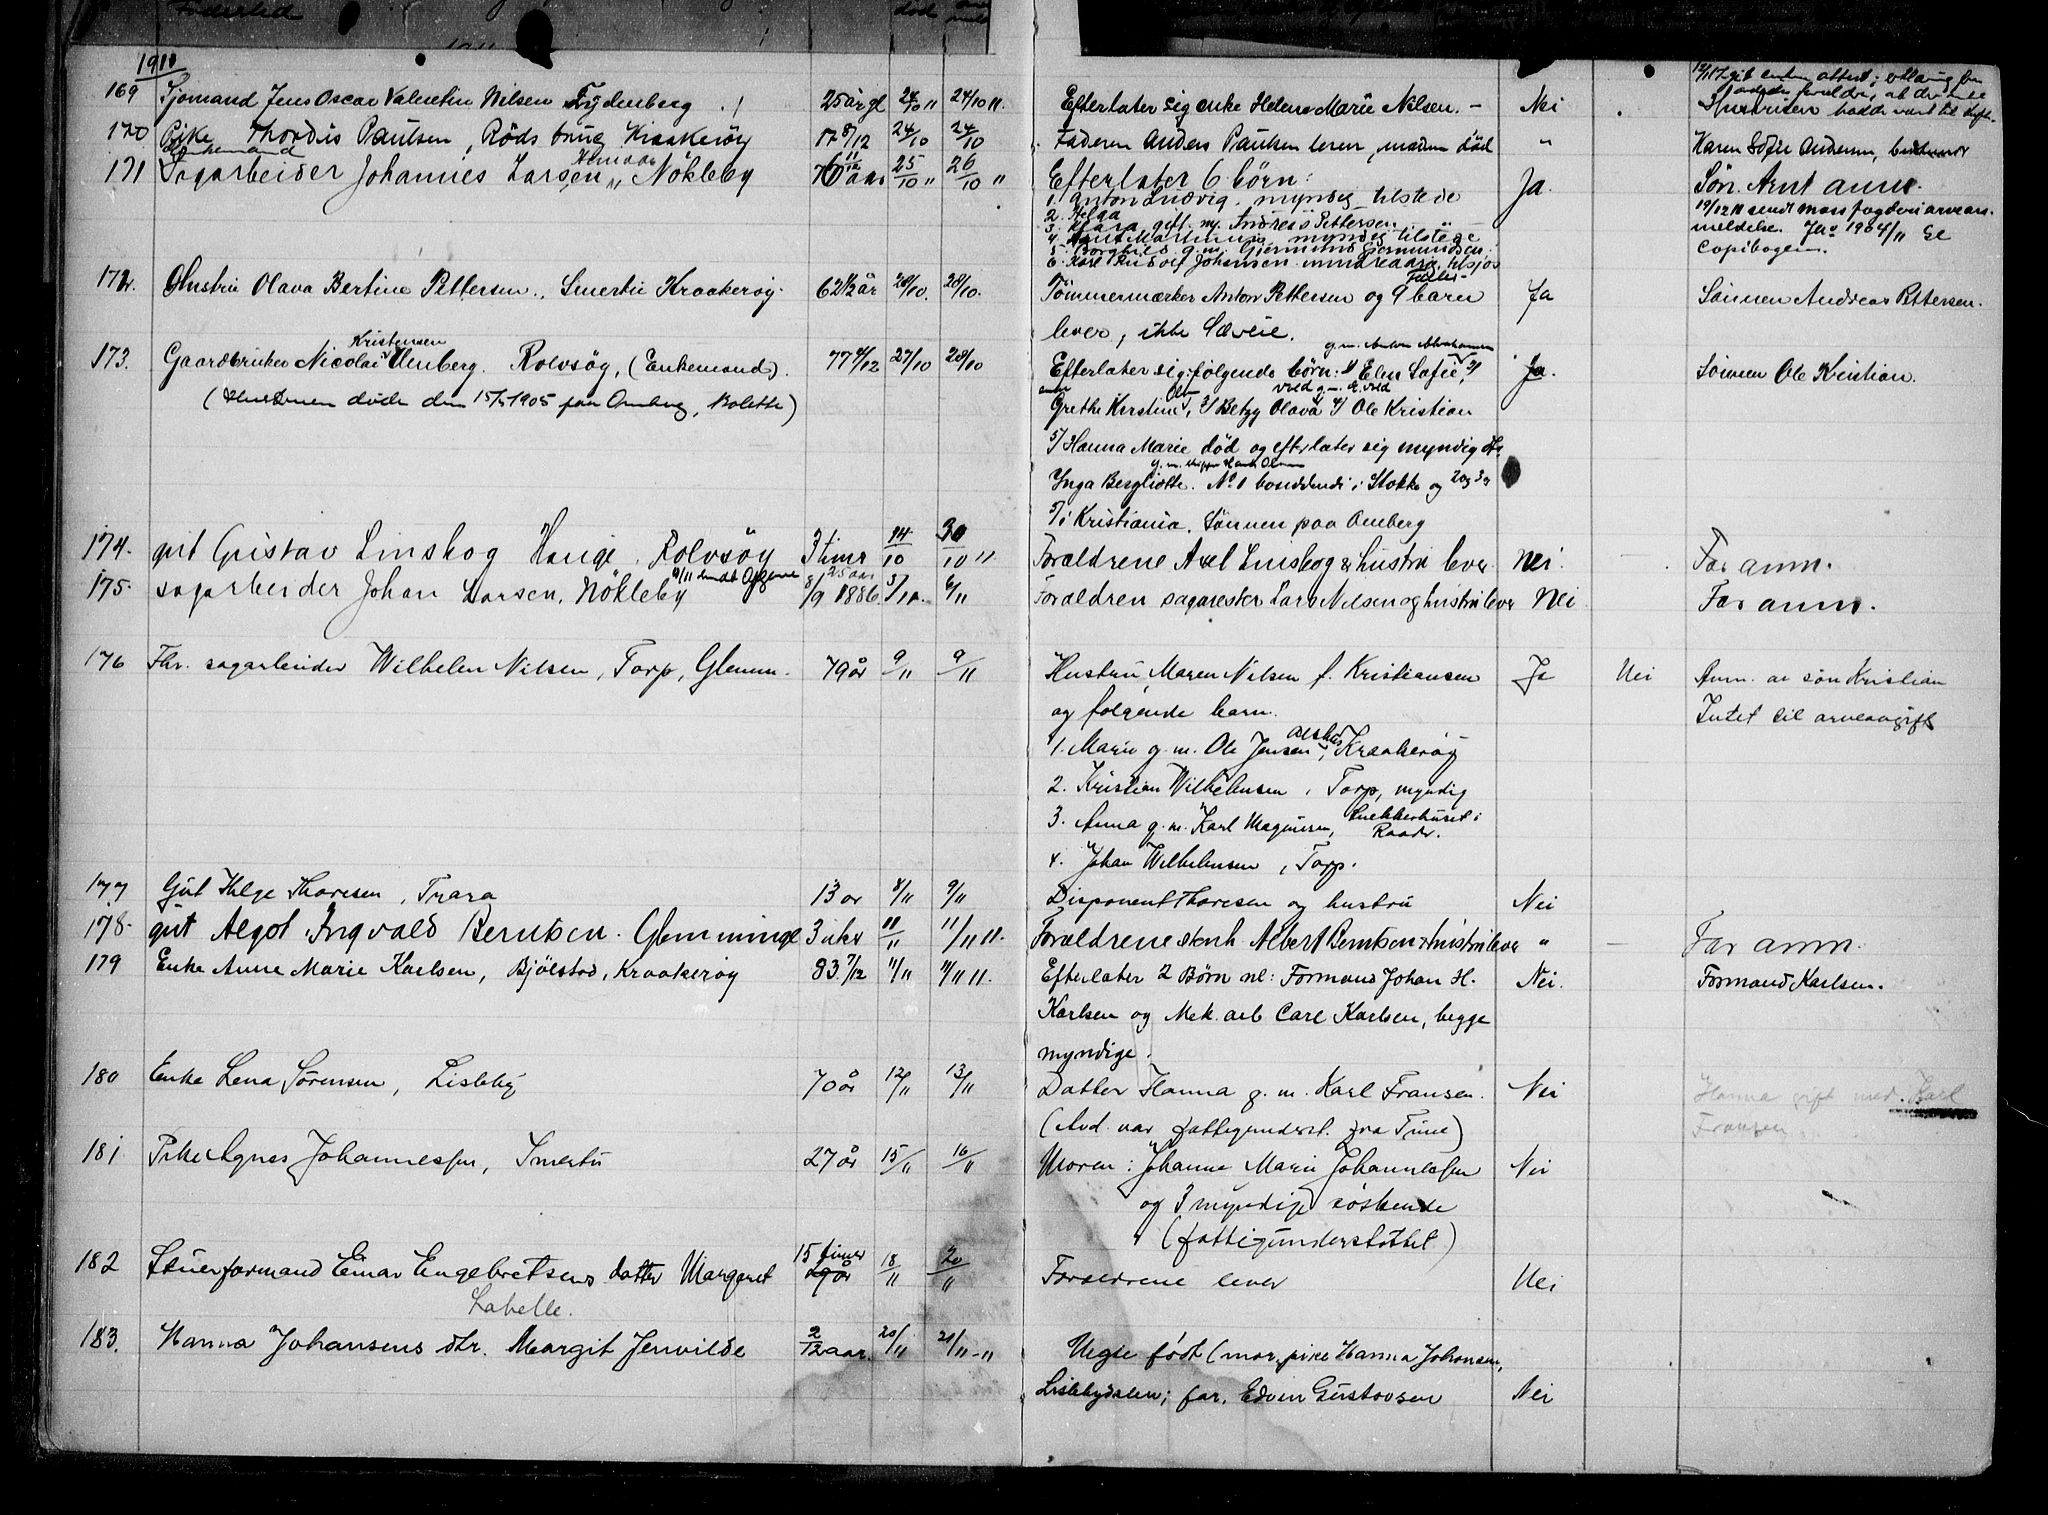 Fødested
død
1911
169 Sjømand Jens Oscar Valentin Nilsen Frydenberg 25 år gl 24/10 11 24/10 11. Efterlater sig enke Helene Marie Nilsen. - Nei
170 Pike Thordis Paulsen, Röds brug Kraakeröy 17 8/12 24/10 24/10 Faderen Anders Paulsen lever, moderen död " Karen Sofie Andersen,
Enkemand
171 Sagarbeider Johannes Larsen, Nökleby 76 11/12 aar 25/10 11 26/10 11 Efterlater 6 börn: Ja. Sön. Arnt anm.
1. Anton Ludvig. myndig tilstede
2. Helga
3. Klara gift m. Andreas Pettersen
4. Arnt Martinius myndig tilstede
5. Borghild g.m. Gjermund Gjermundsen.
6. Karl Rudolf Johansen mindreaarig tilsjøs
19/12 11 sendt Moss fogderi arvean-
meldelse. Jno 1904/11 se
Copibogen.
172. Hustru Olava Bertine Pettersen, Smertu Kraakeröy. 62 1/2 år 28/10. 28/10. Tömmermærker Anton Pettersen og 9 barn Ja Sönnen Andreas Pettersen.
lever, ikke Særeie.
Kristensen
173. Gaardbruker Nicolai Omberg. Rolvsöy, (Enkemand). 77 4/12 27/10 28/10 Efterlater sig fölgende börn: 1/ Elen Sofie, 2/ Ja. Sönnen Ole Kristian.
g.m. Anton Abrahamsen
(Hustruen døde den 15/5 1905 paa Omberg, Bolette)
Grethe Kirstine, 3/ Betzy Olava 4/ Ole Kristian
5/ Hanna Marie død og efterlater sig myndig dtr.
Inga Bergliotte. No 1 boendende i Stokke og 2 og 3 og
5/ i Kristiania. Sönnen paa Omberg
174. gut Gustav Linskog Hauge. Rolvsöy 3 timer 24/10 30/10 11 Forældrene Axel Linskog & hustru lever Nei. Far anm.
175. sagarbeider Johan Larsen, Nökleby 25 aar 8/9 1886 3/11. 6/11 Forældren sagmester Lars Nilsen og hustru lever Nei Far anm.
176 Fhv. sagarbeider Wilhelm Nilsen, Torp, Glemm. 79 år 9/11 9/11 Hustru Maren Nilsen f. Kristiansen Ja Nei Anm. av sön Kristian
og fölgende barn. Intet til arveavgift
1. Marie g. m. Ole Jensen, Alshus, Kraakeröy
2. Kristian Wilhelmsen, Torp, myndig
3. Anna g. m. Karl Magnussen, Snekkerhuset i
Raade.
4. Johan Wilhelmsen, Torp.
177 Gut Helge Thoresen, Trara 13 år 8/11 9/11 Disponent Thoresen og hustru Nei
178. gut Algot Ingvald Berntsen. Glemminge 3 uker 11/11 11/11 11. Forældrene stenh. Albert Berntsen & hustru lever " — Far anm.
179 Enke Anne Marie Karlsen, Bjölstad, Kraakeröy 83 7/12 11/11 11/11 11. Efterlater 2 Börn nl: Formand Johan H. Nei. Formand Karlsen.
Karlsen og Mek. arb Carl Karlsen, begge
myndige.
180 Enke Lena Sörensen, Lisleby 70 år 12/11 13/11 Datter Hanna g. m. Karl Fransen. Nei Hanna gift med Karl
(Avd. var fattigunderst. fra Tune) Fransen
181 Pike Agnes Johannessen, Smertu 27 år 15/11 16/11 Moren: Johanne Marie Johannessen Nei
og 3 myndige söskende
(fattigunderstöttet)
182 Stuerformand Einar Engebretsens datter Margaret 15 timer 18/11 20/11 Forældrene lever Nei
Labelle.
183. Hanna Johansens dtr. Margit Jenvilde 2/12 aar. 20/11 21/11 - 11 Uegte födt (mor, pike Hanna Johansen,
Lislebydalen; far, Edvin Gustavsen Nei